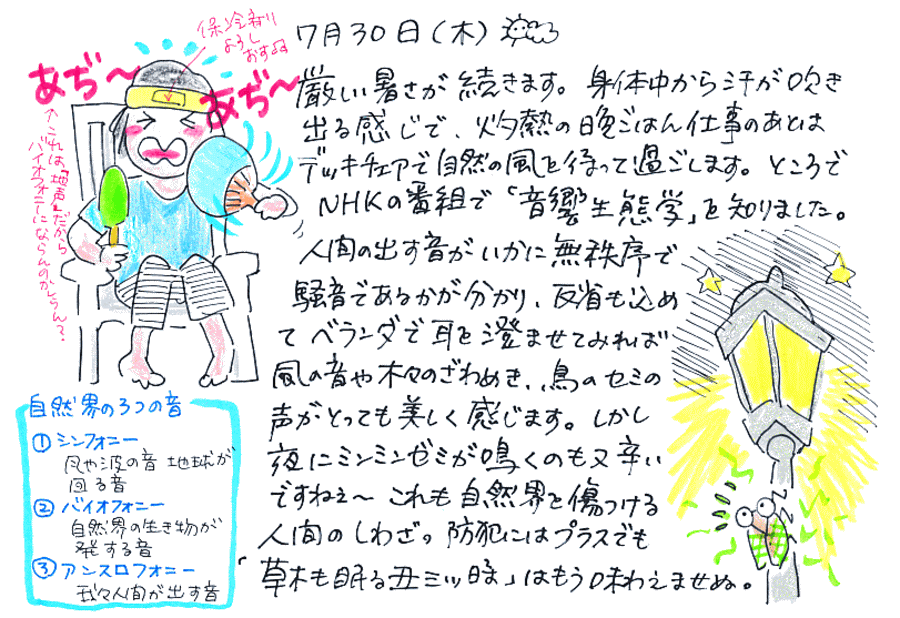 7月30日(木)
厳しい暑さが続きます。身体中から汗が吹き
出る感じで、灼熱の晩ごはん仕事のあとは
デッキチェアで自然の風を待って過ごします。ところで
NHKの番組で「音響生態学」を知りました。
人間の出す音がいかに無秩序で
騒音であるかが分かり、反省も込め
てベランダで耳を澄ませてみれば
風の音や木々のざわめき、鳥のセミの
声がとっても美しく感じます。しかし
夜にミンミンゼミが鳴くのも又辛い
ですねぇ〜これも自然界を傷つける
人間のしわざ。防犯にはプラスでも
「草木も眠る丑ミッ時」はもう味わえませぬ。
保冷剤入り
よろし
おすよ
あぢ〜
あぢ〜
↑これは「地声」だから
バイオフォニーにならんのかしらん?
自然界の3つの音
①シンフォニー
風や波の音 地球が
回る音
②バイオフォニー
自然界の生き物が
発する音
③アンスロフォニー
我々人間が出す音